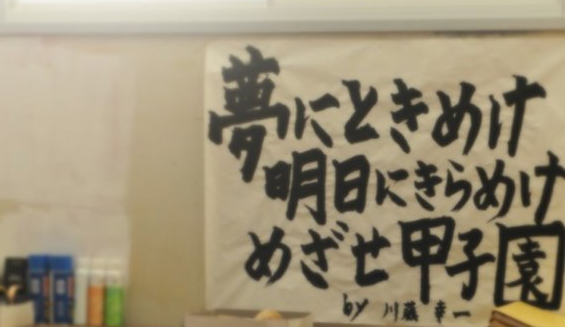 夢にときめけ
明日にきらめけ
めざせ甲子園
by 川藤幸一